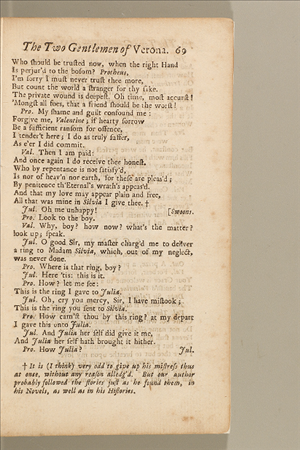 The Two Gentlemen of Verona. 69
Who should be trusted now, when the right Hand
Is perjur'd to the bosom? Protheus,
I'm sorry I must never trust thee more,
But count the world a stranger for thy sake.
The private wound is deepest. Oh time, most accurst!
'Mongst all foes, that a friend should be the worst?
Pro. My shame and guilt confound me:
Forgive me, Valentine; if hearty sorrow
Be a sufficient ransom for offence,
I tender't here; I do as truly suffer,
As e'er I did commit.
Val. Then I am paid:
And once again I do receive thee honest.
Who by repentance is not satisfy'd,
Is nor of heav'n nor earth, for these are pleas'd;
By penitence th'Eternal's wrath's appeas'd.
And that my love may appear plain and free,
All that was mine in Silvia I give thee. †
Jul. Oh me unhappy! [Swoons.
Pro. Look to the boy.
Val. Why, boy? how now? what's the matter?
look up; speak.
Jul. O good Sir, my master charg'd me to deliver
a ring to Madam Silvia, which, out of my neglect,
was never done.
Pro. Where is that ring, boy?
Jul. Here 'tis: this is it.
Pro. How? let me see:
This is the ring I gave to Julia.
Jul. Oh, cry you mercy, Sir, I have mistook;
This is the ring you sent to Silvia.
Pro. How cam'st thou by this ring? at my depart
I gave this unto Julia.
Jul. And Julia her self did give it me,
And Julia her self hath brought it hither.
Pro. How Julia?
Jul.
† It is (I think) very odd to give up his mistress thus
at once, without any reason alledg'd. But our author
probably followed the stories just as he found them, in
his Novels, as well as in his Histories.